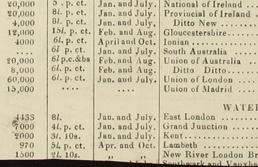 20,000 5 . p. ct. Jan. and July. National of Ireland
20,000 Jan. and July. Provincial of Ireland
4,000 8l. p. ct. Jan. and July. Ditto New
12,000 15l. p. ct. Feb. and Aug. Gloucestershire
6l. p. ct. April and Oct. Ionian
.... 6l. p. ct. Jan. and July. South Australia
20,000 6l pc.&bs Feb. and Aug. Union of Australia
8,000 6l. p. ct. Feb. and Aug. Ditto Ditto
60,000 6l. p. ct. Jan. and July. Union of London
15,000 .... .... Union of Madrid
WATE
4433 8l. Jan. and July. East London
7000 4l. p. ct. Jan. and July. Grand Junction
2000 3l. 10s. Jan. and July. Kent
970 5l. p. ct. Apr. and Oct. Lambeth
1500 2l. 10s. New River London Br
Southwark and Vauxha